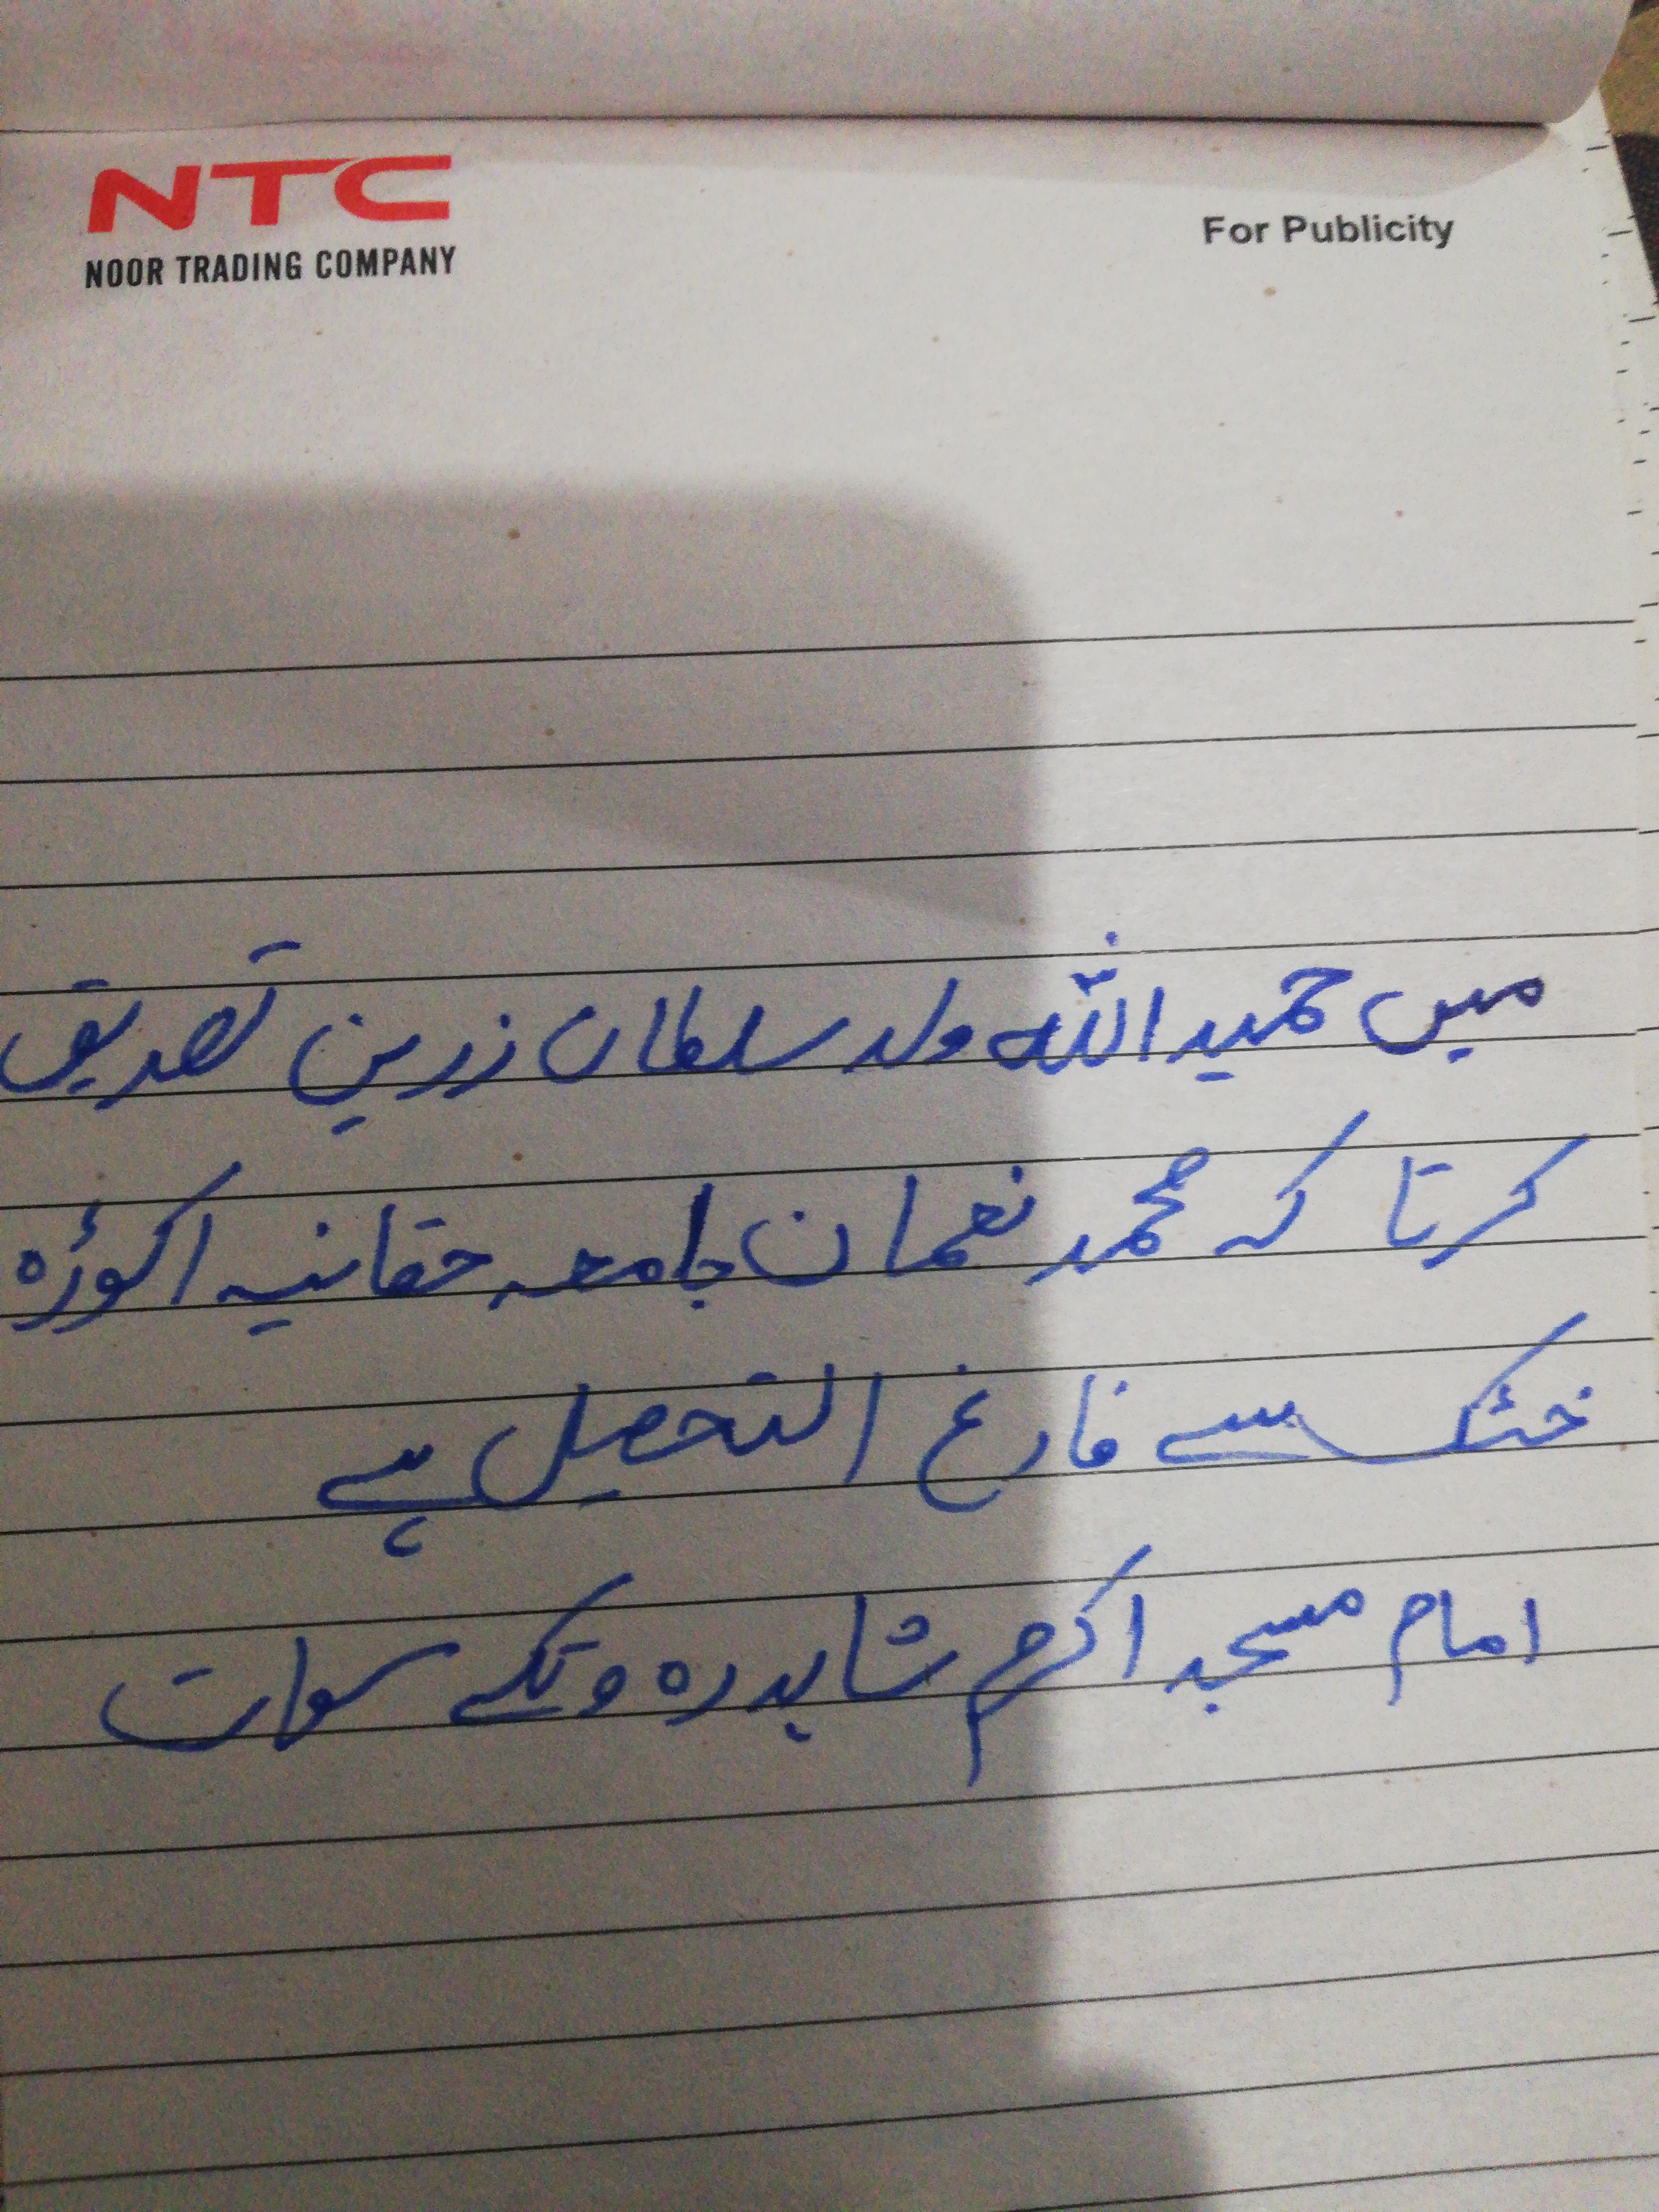 NTC
NOOR TRADING COMPANY
For Publicity
میں حمید اللہ ولد سلطان زرین تصدیق
کرتا کہ محمد نعمان جامعہ حقانیہ اکوڑہ
خٹک سے فارغ التحصیل ہے
امام مسجد اکرم شاہدرہ وتکے سوات